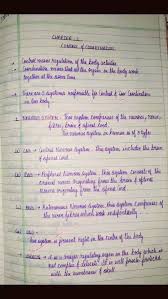 CHAPTER - 2
CONTROL & COORDINATION
Control means regulation of the body activities
Coordination means that all the organs in the body work
together at the same time.
There are 2 systems responsible for Control & Coordination
in our body.
1. NERVOUS SYSTEM - This system comprises of the neurons, nerve
fibres, brain & spinal cord.
The nervous system in Human is of 3 types
(i) CNS - Central Nervous System. This system includes the brain
& spinal cord.
(ii) PNS - Peripheral Nervous System. This system consists of the
cranial nerves originating from the brain & spinal nerves
originating from the spinal cord.
(iii) ANS - Autonomous Nervous System. This system comprises of
the nerve fibres which work independently.
CNS -
This system is present right in the centre of the body
BRAIN - It is a major regulatory organ in the body which is
complex & delicate. It is well protected
with the membranes & skull.